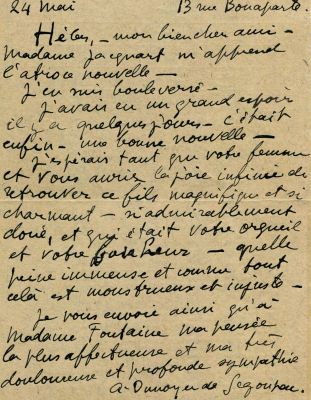 24 Mai 13 rue Bonaparte.
Hélas, – mon bien cher ami –
Madame Jacquart m'apprend
l'atroce nouvelle –
J'en suis bouleversé –
J'avais eu un grand espoir
il y a quelques jours – c'était
enfin – une bonne nouvelle –
J'espérais tant que votre femme
et vous auriez la joie infinie de
retrouver ce fils magnifique et si
charmant – si admirablement
doué, et qui était votre orgueil
et votre bonheur – quelle
peine immense et comme tout
cela est monstrueux et injuste –
Je vous envoie ainsi qu'à
Madame Fontaine ma pensée
la plus affectueuse et ma très
douloureuse et profonde sympathie
A. Dunoyer de Segonzac.